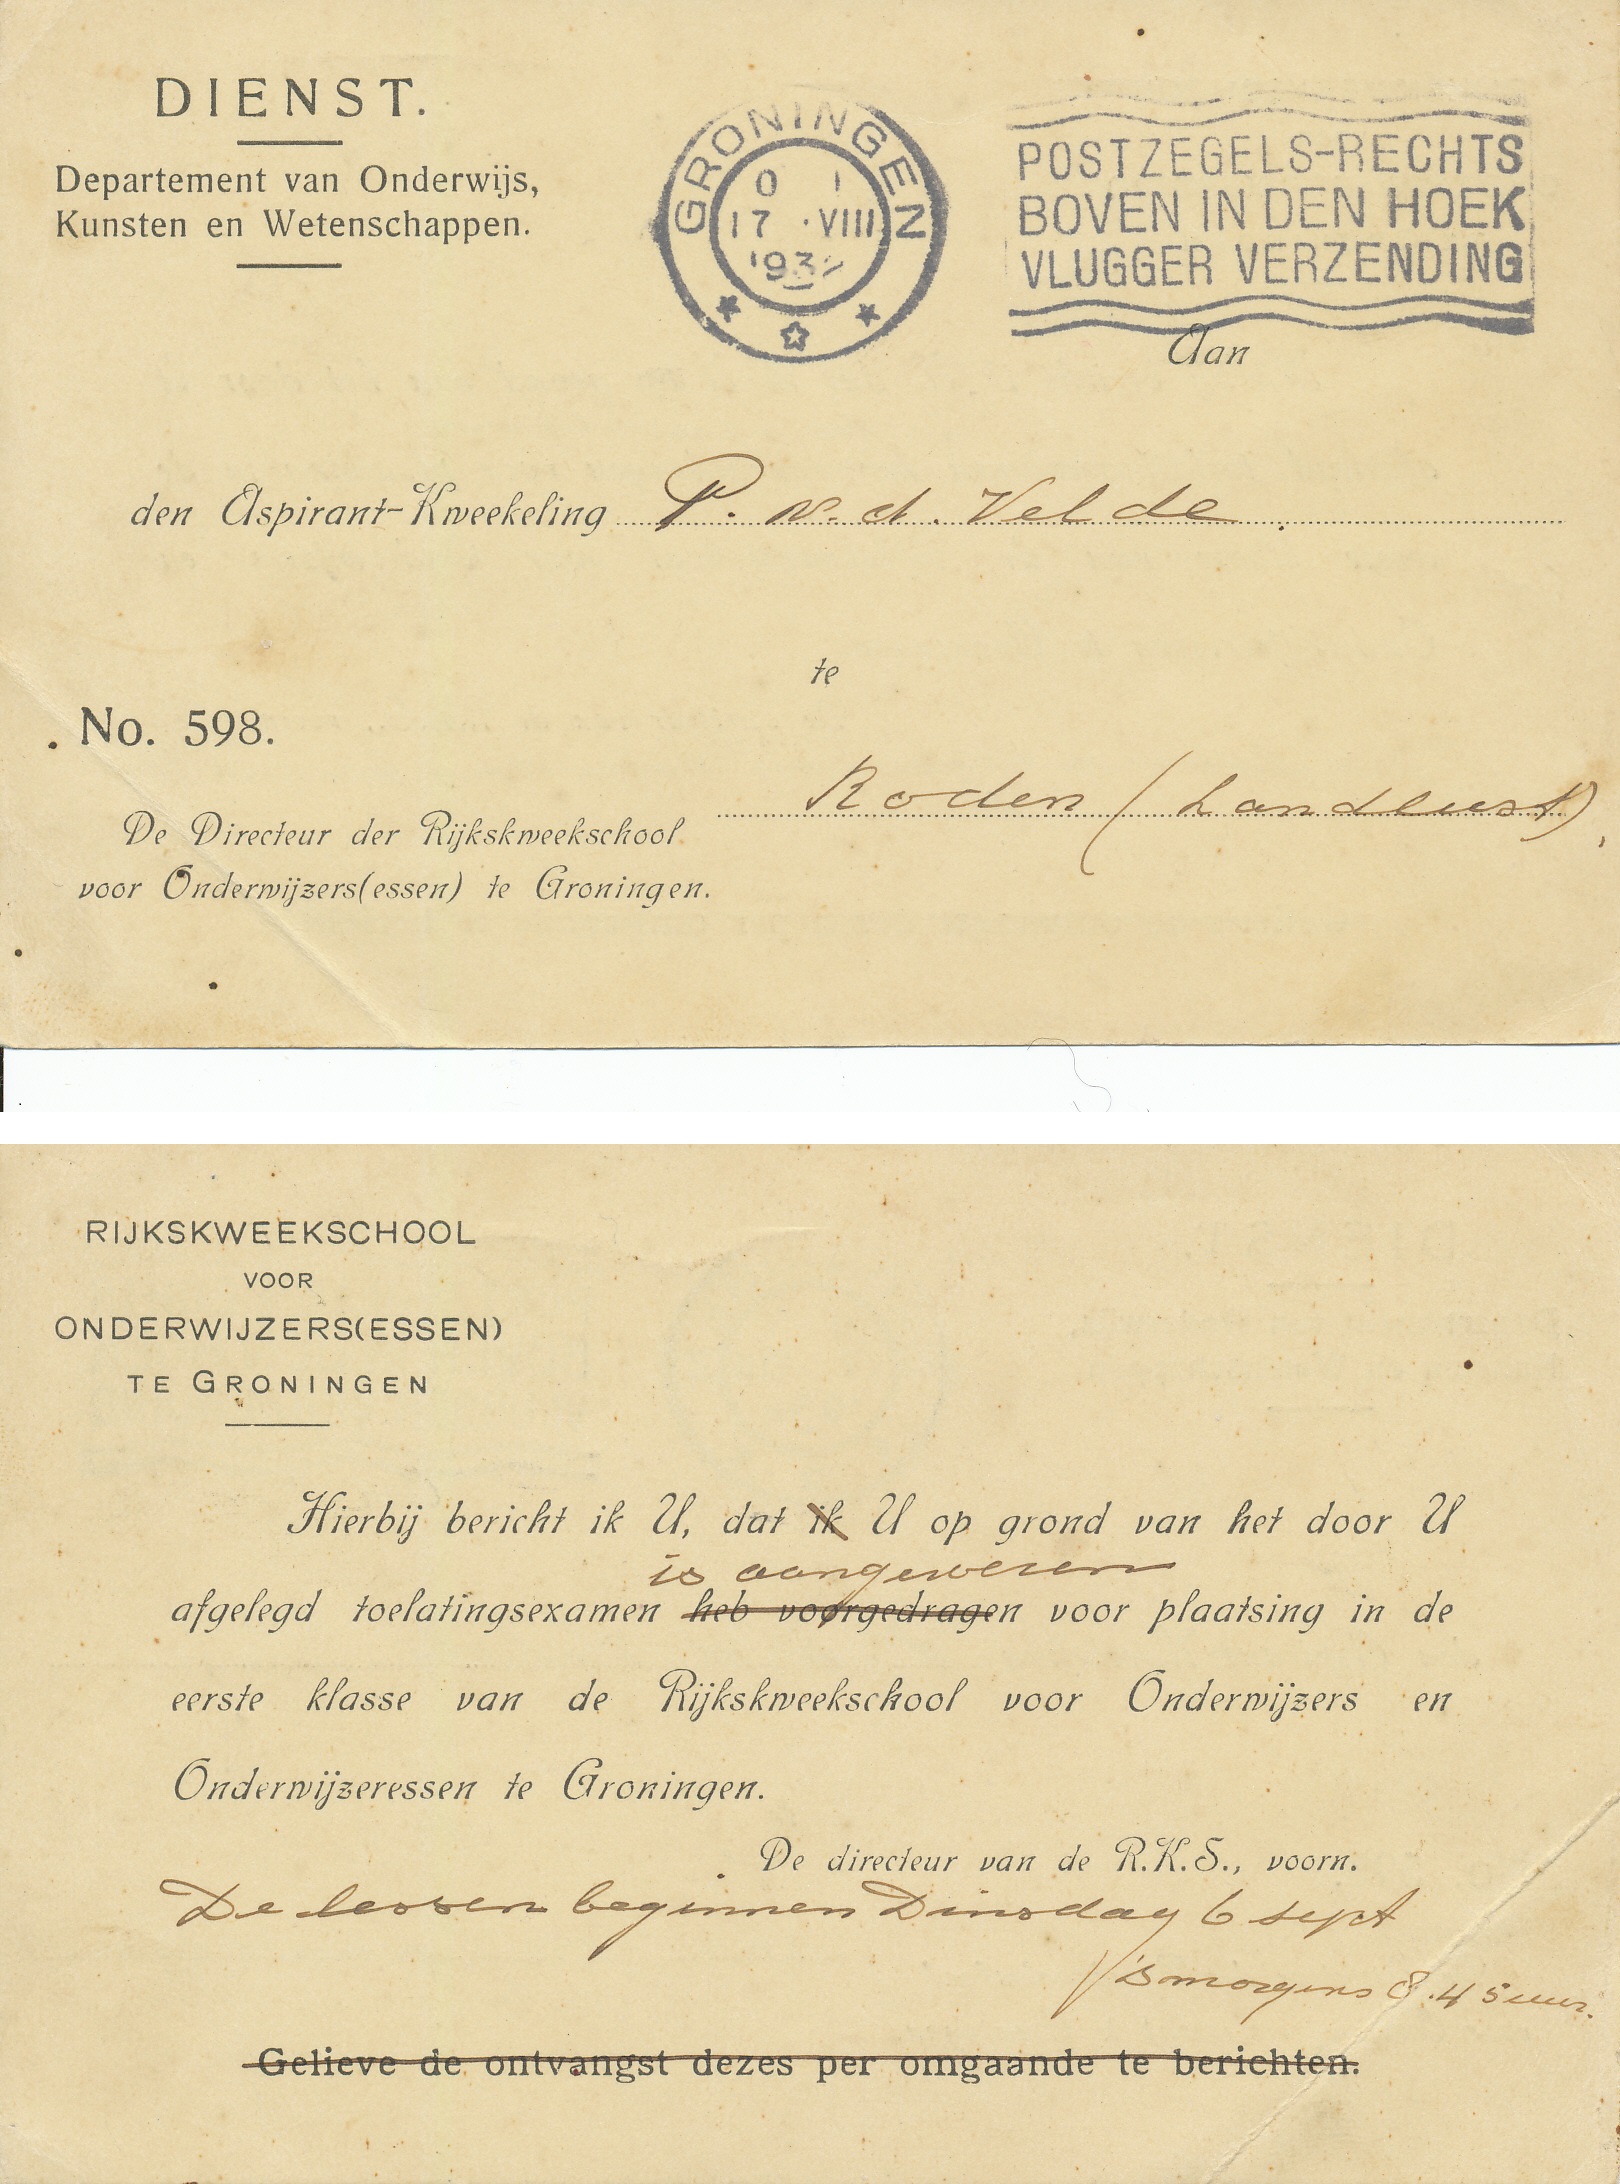 DIENST.
Departement van Onderwijs,
Kunsten en Wetenschappen.
GRONINGEN
17 VIII
193
POSTZEGELS-RECHTS
BOVEN IN DEN HOEK
VLUGGER VERZENDING
Aan
den Aspirant-Kweekeling P. v. d. Velde.
te
No. 598.
Roden (Landlust),
De Directeur der Rijkskweekschool
voor Onderwijzers(essen) te Groningen.
RIJKSKWEEKSCHOOL
VOOR
ONDERWIJZERS(ESSEN)
TE GRONINGEN
Hierbij bericht ik U, dat ik U op grond van het door U
is aangewezen
afgelegd toelatingsexamen heb voorgedragen voor plaatsing in de
eerste klasse van de Rijkskweekschool voor Onderwijzers en
Onderwijzeressen te Groningen.
De directeur van de R.K.S., voorn.
De lessen beginnen Dinsdag 6 sept
's morgens 8.45 uur.
Gelieve de ontvangst dezes per omgaande te berichten.